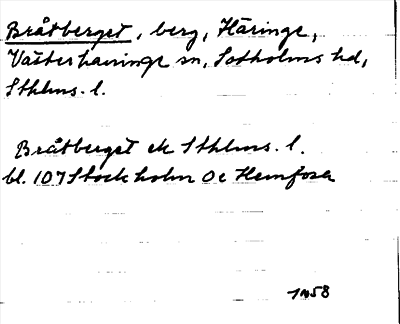 Bråtberget, berg, Häringe,
Västerhaninge sn, Sotholms hd,
Sthlms. l.
Bråtberget ek Sthlms. l.
bl. 107 Stockholm Oc Hemfosa
1958